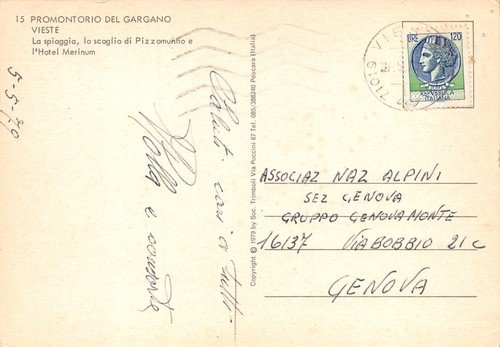 15 PROMONTORIO DEL GARGANO
VIESTE
La spiaggia, lo scoglio di Pizzomunno e
l'Hotel Merinum
5-5-70
Saluti cari a tutti
e
Copyright © 1979 by Soc. Trimboli Via Puccini 67 Tel. 085/386240 Pescara (Italia)
71019 VIE
LIRE 120
REPUBBLICA
ITALIANA
ASSOCIAZ NAZ ALPINI
SEZ GENOVA
GRUPPO GENOVA MONTE
16137 VIA BOBBIO 21C
GENOVA